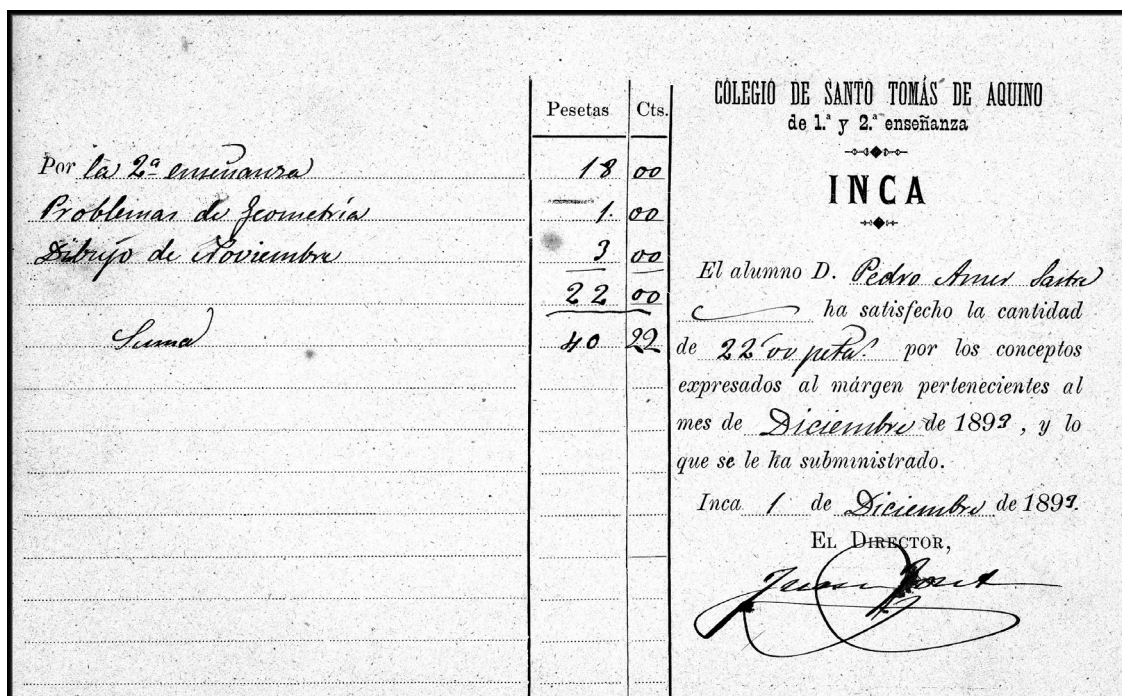 Pesetas Cts.
Por la 2ª enseñanza 18 00
Problemas de Geometría 1. 00
Dibujo de Noviembre 3 00
22 00
Suma 40 22
COLEGIO DE SANTO TOMÁS DE AQUINO
de 1.ª y 2.ª enseñanza
INCA
El alumno D. Pedro Amer Sastre
ha satisfecho la cantidad
de 22'00 peta. por los conceptos
expresados al márgen pertenecientes al
mes de Diciembre de 1899, y lo
que se le ha subministrado.
Inca 1 de Diciembre de 1899.
EL DIRECTOR,
Juan